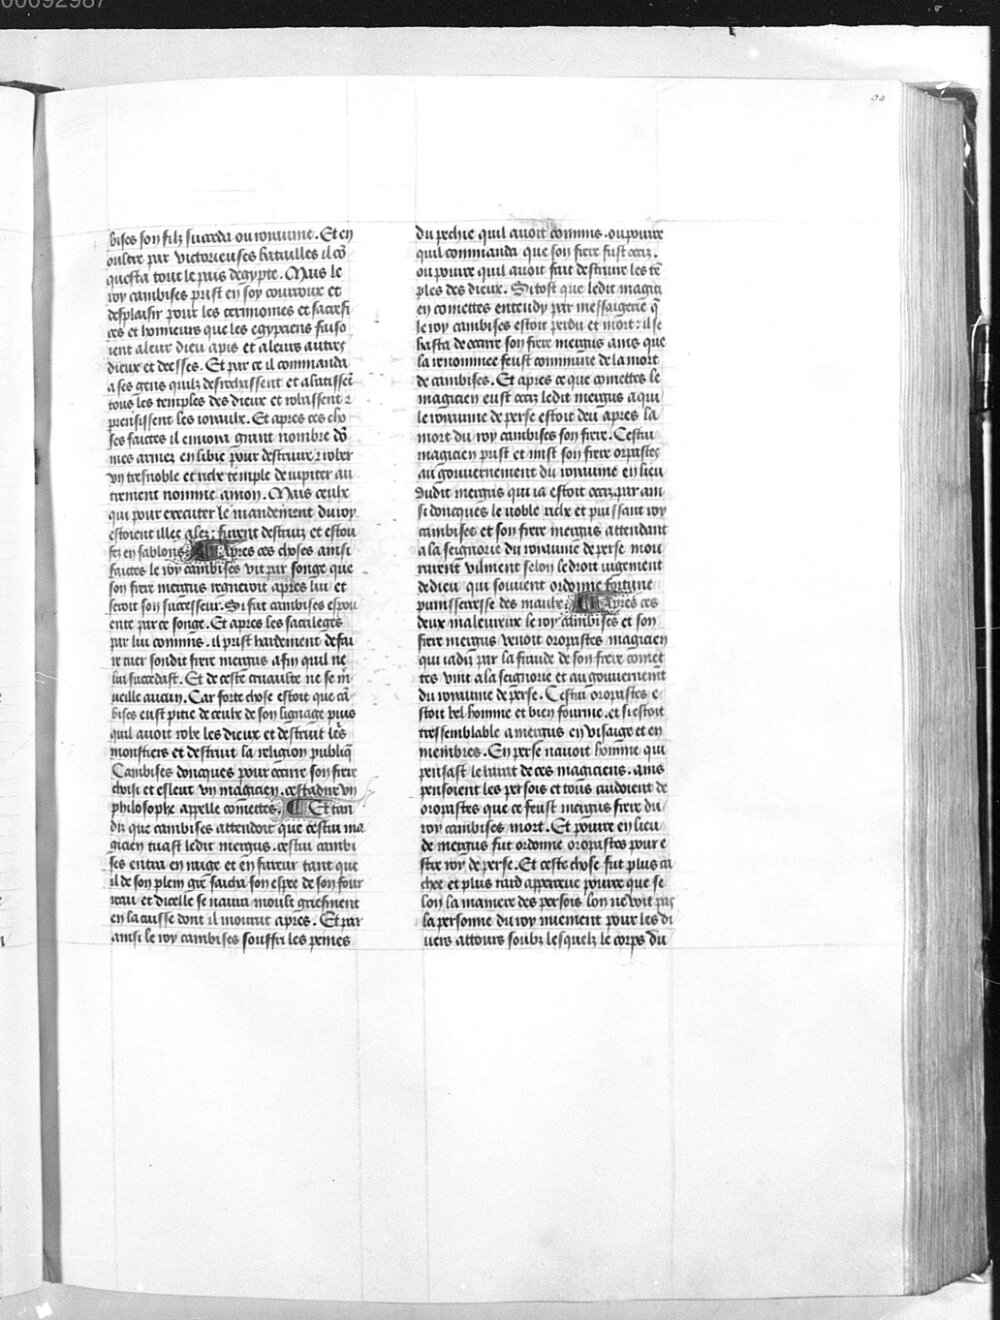 00092987
94
bises son filz succeda ou roiaume. Et en
oultre par victorieuses batailles il cō
questa tout le pais degypte. Mais le
roy cambises prist en soy courroux et
desplaisir pour les cerimonies et sacrefi
ces et honneurs que les egypciens faiso
ient a leur dieu apis et a leurs autres
dieux et deesses. Et par ce il commanda
a ses gens quilz desrochassent et abatissēt
tous les temples des dieux et robassent ⁊
prensissent les ioyaulx. Et apres ces cho
ses faictes il enuoia grant nombre dō
mes armez en libie pour destruire ⁊ rober
vn tresnoble et riche temple de iupiter au
trement nomme amon. Mais ceulx
qui pour executer le mandement du roy
estoient illec alez: furent destruiz et estou
fez en sablons. Apres ces choses ainsi
faictes le roy cambises vit par songe que
son frere mergus regneroit apres lui et
seroit son successeur. Si fut cambises espou
ente par ce songe. Et apres les sacrileges
par lui commis. il prist hardement de fai
re tuer sondit frere mergus afin quil ne
lui succedast. Et de ceste cruaulte ne se m̄
ueille aucun. Car forte chose estoit que cā
bises eust pitie de ceulx de son lignage puis
quil auoit robe les dieux et destruit les
monstiers et destruit la religion publiq̄
Cambises doncques pour occire son frere
choisi et esleut vn magicien. cestadire vn
philosophe appelle comettes. Et tan
dis que cambises attendoit que cestui ma
gicien tuast ledit mergus. cestui cambi
ses entra en rage et en fureur tant que
il de son plein gre sacha son espee de son four
reau et dicelle se naura moult griefment
en la cuisse dont il mourut apres. Et par
ainsi le roy cambises souffri les peines
du pechie quil auoit commis. ou pource
quil commanda que son frere fust occiz.
ou pource quil auoit fait destruire les tē
ples des dieux. Si tost que ledit magici
en comettes entendy par messaigerie q̄
le roy cambises estoit perdu et mort: il se
hasta de occire son frere mergus ains que
la renommee feust commune de la mort
de cambises. Et apres ce que comettes le
magicien eust occiz ledit mergus a qui
le roiaume de perse estoit deu apres la
mort du roy cambises son frere. Cestui
magicien prist et mist son frere orpastes
au gouuernement du roiaume en lieu
dudit mergus qui ia estoit occiz par ain
si doncques le noble riche et puissant roy
cambises et son frere mergus attendant
a la seignorie du roiaume de perse mou
rurent vilment selon le droit iugement
de dieu qui souuent ordonne fortune
punisserresse des maulx. Apres ces
deux maleureux le roy cambises et son
frere mergus venoit oropastes magicien
qui iadiz par la fraude de son frere comet
tes vint a la seignorie et au gouuernemt
du roiaume de perse. Cestui oropastes e
stoit bel homme et bien fourme. et si estoit
tressemblable a mergus en visaige et en
membres. En perse nauoit homme qui
pensast le barat de ces magiciens. ains
pensoient les persois et tous cuidoient de
oropastes que ce feust mergus frere du
roy cambises mort. Et pource en lieu
de mergus fut ordonne oropastes pour e
stre roy de perse. Et ceste chose fut plus ca
chee et plus tard apperceue pource que se
lon la maniere des persois lon ne voit pas
la personne du roy nuement pour les di
uers attours soubz lesquelz le corps du